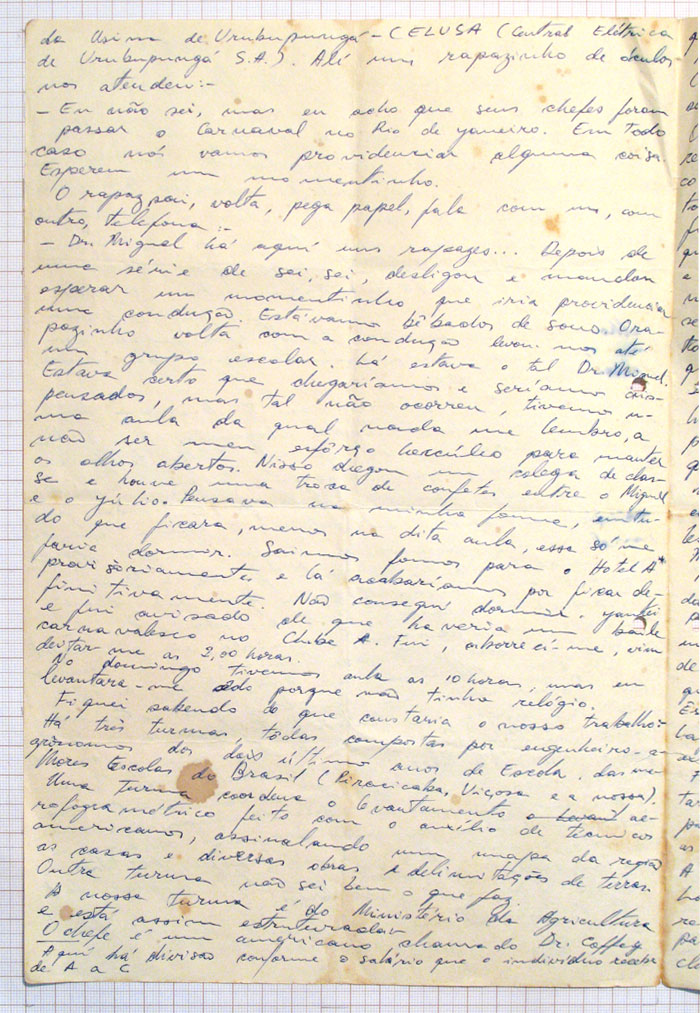 da Usina de Urubupungá - CELUSA (Central Elétrica
de Urubupungá S.A.). Ali um rapazinho de óculos
nos atendeu:-
- Eu não sei, mas eu acho que seus chefes foram
passar o Carnaval no Rio de Janeiro. Em todo
caso nós vamos providenciar alguma coisa.
Esperem um momentinho.
O rapaz sai, volta, pega papel, fala com um, com
outro, telefona:-
- Dr. Miguel há aquí uns rapazes... Depois de
uma série de sei, sei, desligou e mandou
esperar um momentinho que iria providenciar
uma condução. Estávamos bêbados de sono. O ra-
pazinho volta com a condução levou-nos até
um grupo escolar. Lá estava o tal Dr. Miguel.
Estava certo que chegaríamos e seríamos dis-
pensados, mas tal não ocorreu, tivemos u-
ma aula da qual nada me lembro, a
não ser meu esfôrço hercúleo para manter
os olhos abertos. Nisso chegou um colega de clas-
se e houve uma troca de confetes entre o Miguel
e o Júlio. Pensava na minha fome, em tu-
do que ficara, menos na dita aula, essa só me
faria dormir. Saimos fomos para o Hotel A*
provisòriamente e lá acabaríamos por ficar de-
finitivamente. Não consegui dormir. Jantei
e fui avisado de que haveria um baile
carnavalesco no Clube A. Fui, aborreci-me, vim
deitar-me as 2,00 horas.
No domingo tivemos aula as 10 horas, mas eu
levantara-me cedo porque não tinha relógio.
Fiquei sabendo do que constaria o nosso trabalho:
Há três turmas, tôdas compostas por engenheiro-a-
grônomos dos dois últimos anos de Escola, das me-
lhores Escolas do Brasil (Piracicaba, Viçosa e a nossa).
Uma turma coordena o levantamento ae-
rofogramétrico feito com o auxílio de técnicos
americanos, assinalando um mapa da região
as casas e diversas obras e delimitações de terras.
Outra turma não sei bem o que faz.
A nossa turma é do Ministério da Agricultura
e está assim estruturada:
O chefe é um americano chamado Dr. Coffey
Aquí há divisão conforme o salário que o indivíduo recebe
de A a C